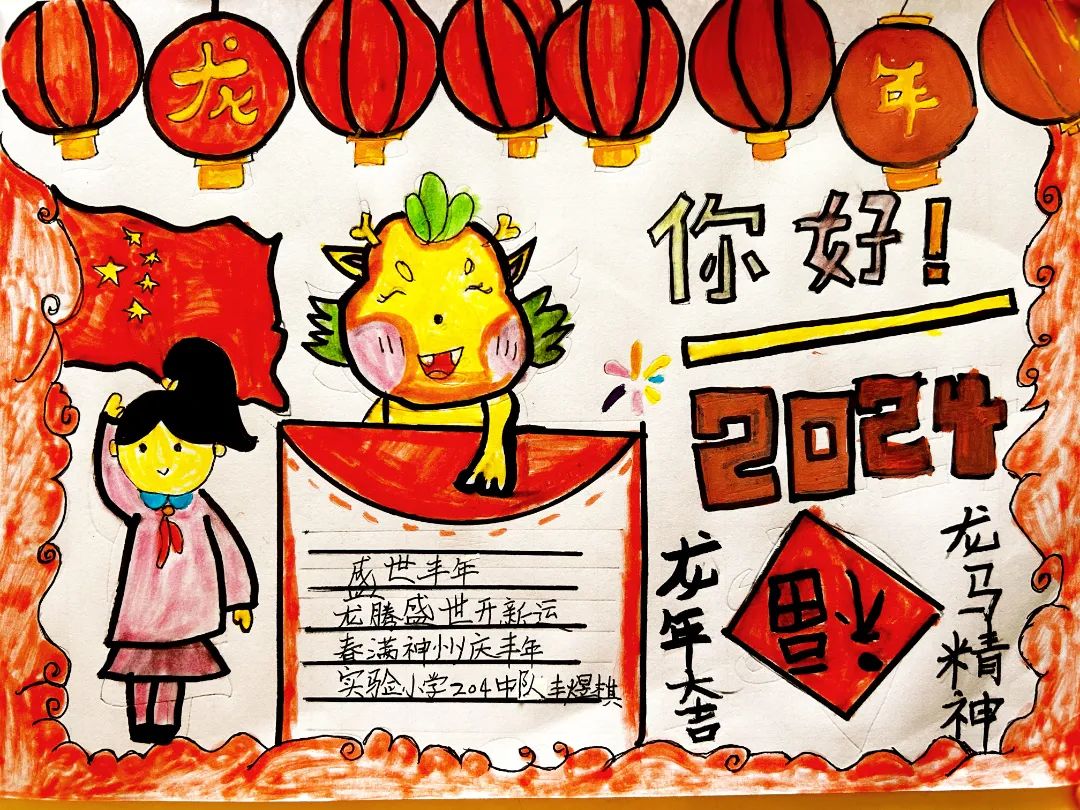 龙
年
你好!
2024
龙年大吉
福
龙马精神
盛世丰年
龙腾盛世开新运
春满神州庆丰年
实验小学204中队丰煜棋